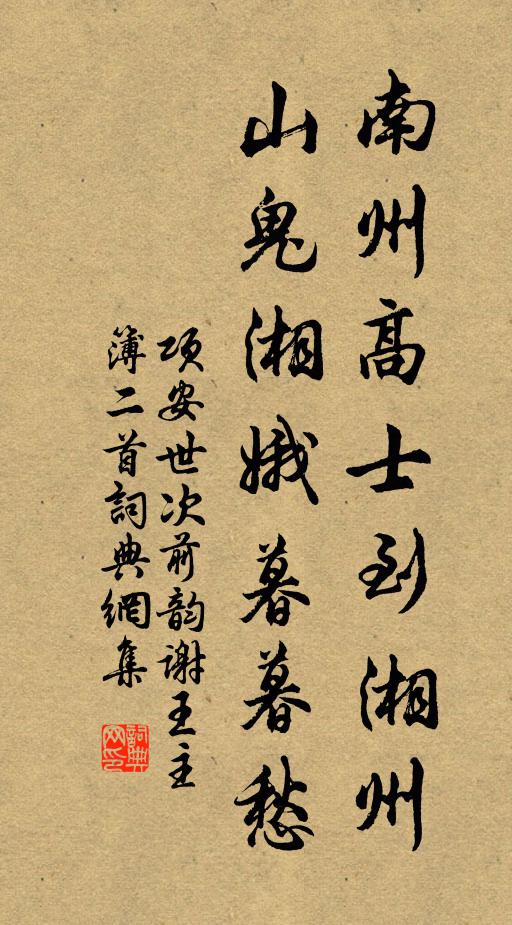 南州高士到湘州
山鬼湘娥暮暮愁
项安世次前韵谢王主
簿二首詞典網集
詞典网印